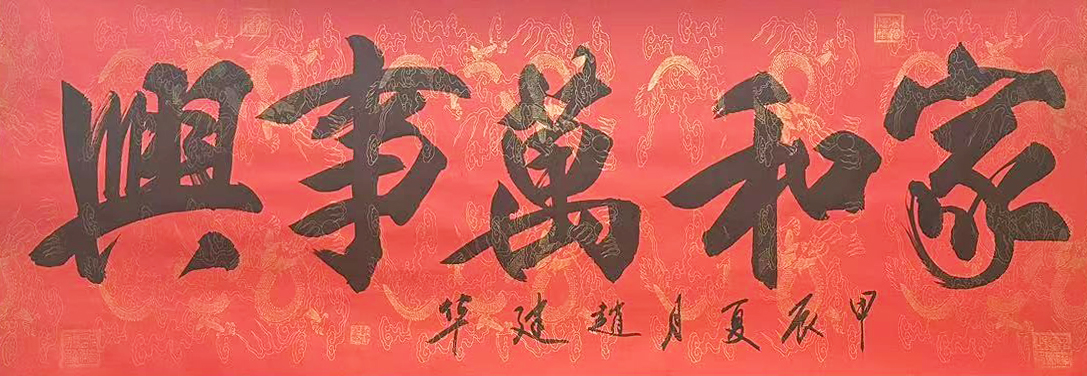 家和萬事興
甲辰夏月趙建华